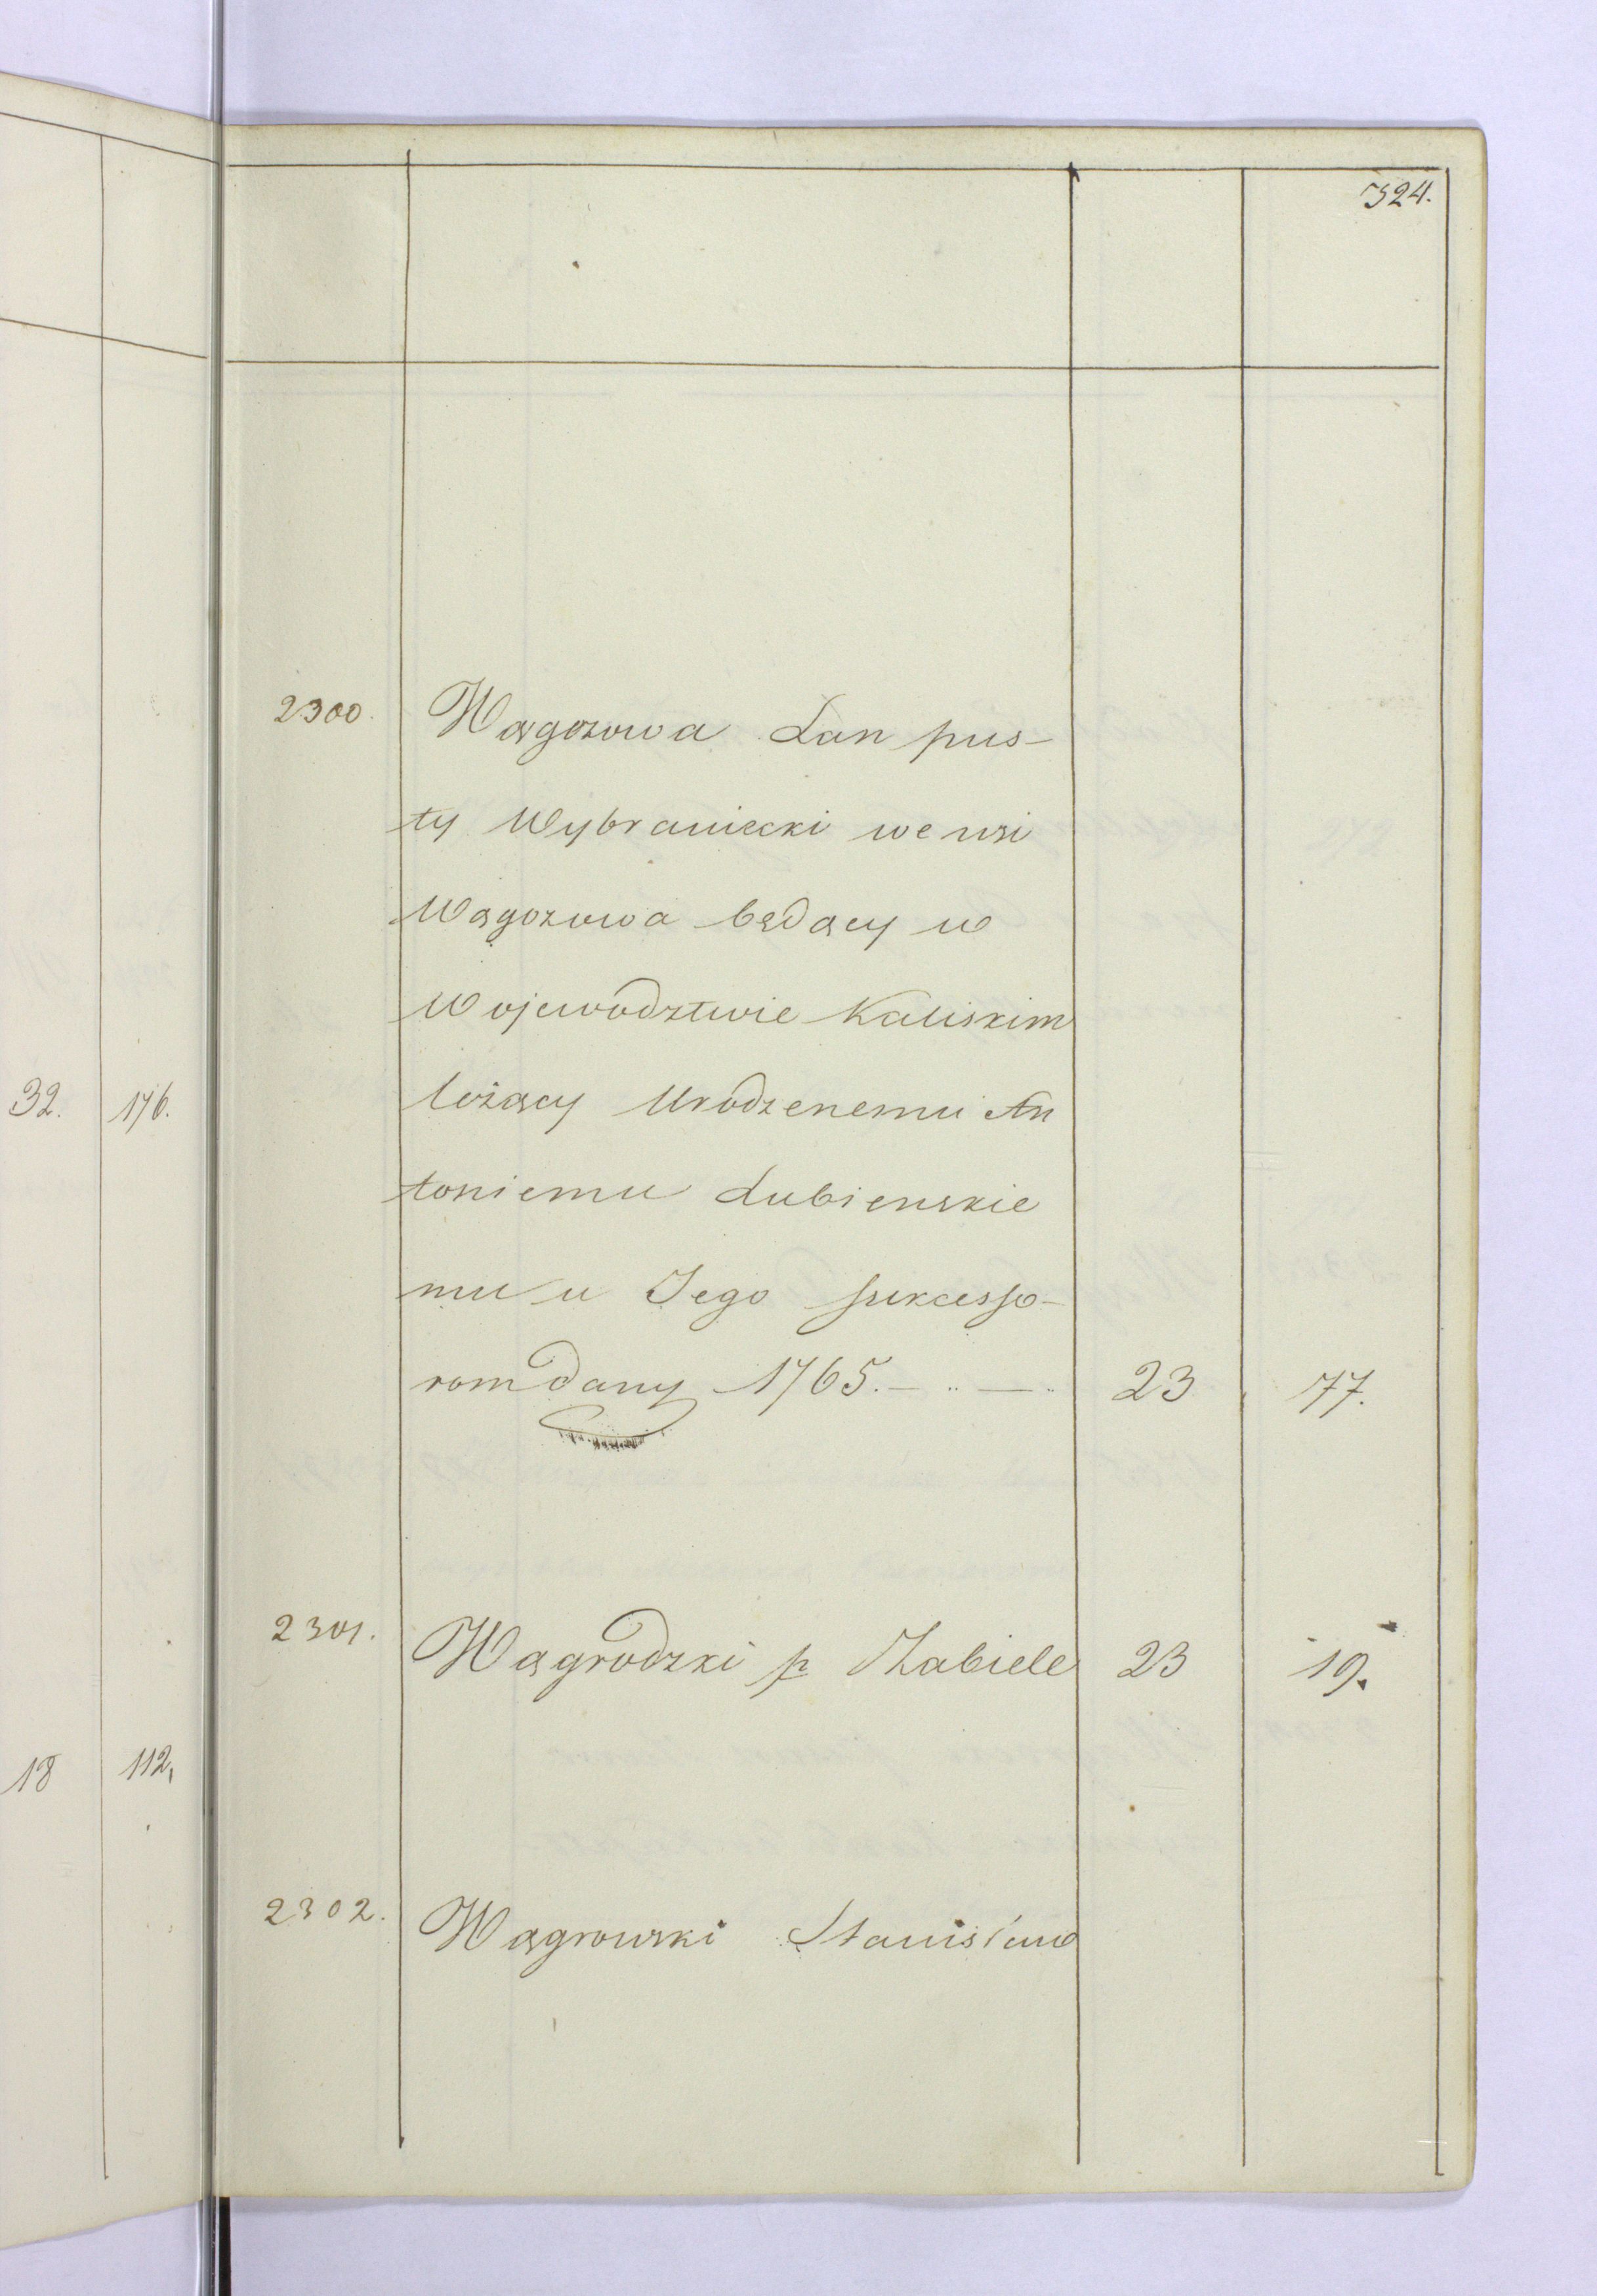 324.
2300. Wągozowa Łan pus-
ty Wybraniecki we wsi
Wągozowa będący w
Wojewodztwie Kaliskim
leżący Urodzenemu An
toniemu Lubienskie
mu u Jego sukcesso-
rom dany 1765. — .. — .. 23 77.
2301. Wągrodzki p Zabiele 23 19.
2302. Wągrowski Stanisław
32. 176.
18 112.